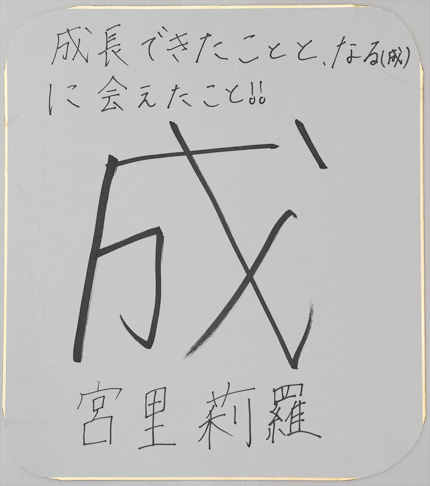 成長できたことと、なる(成)
に会えたこと!!
成
宮里莉羅